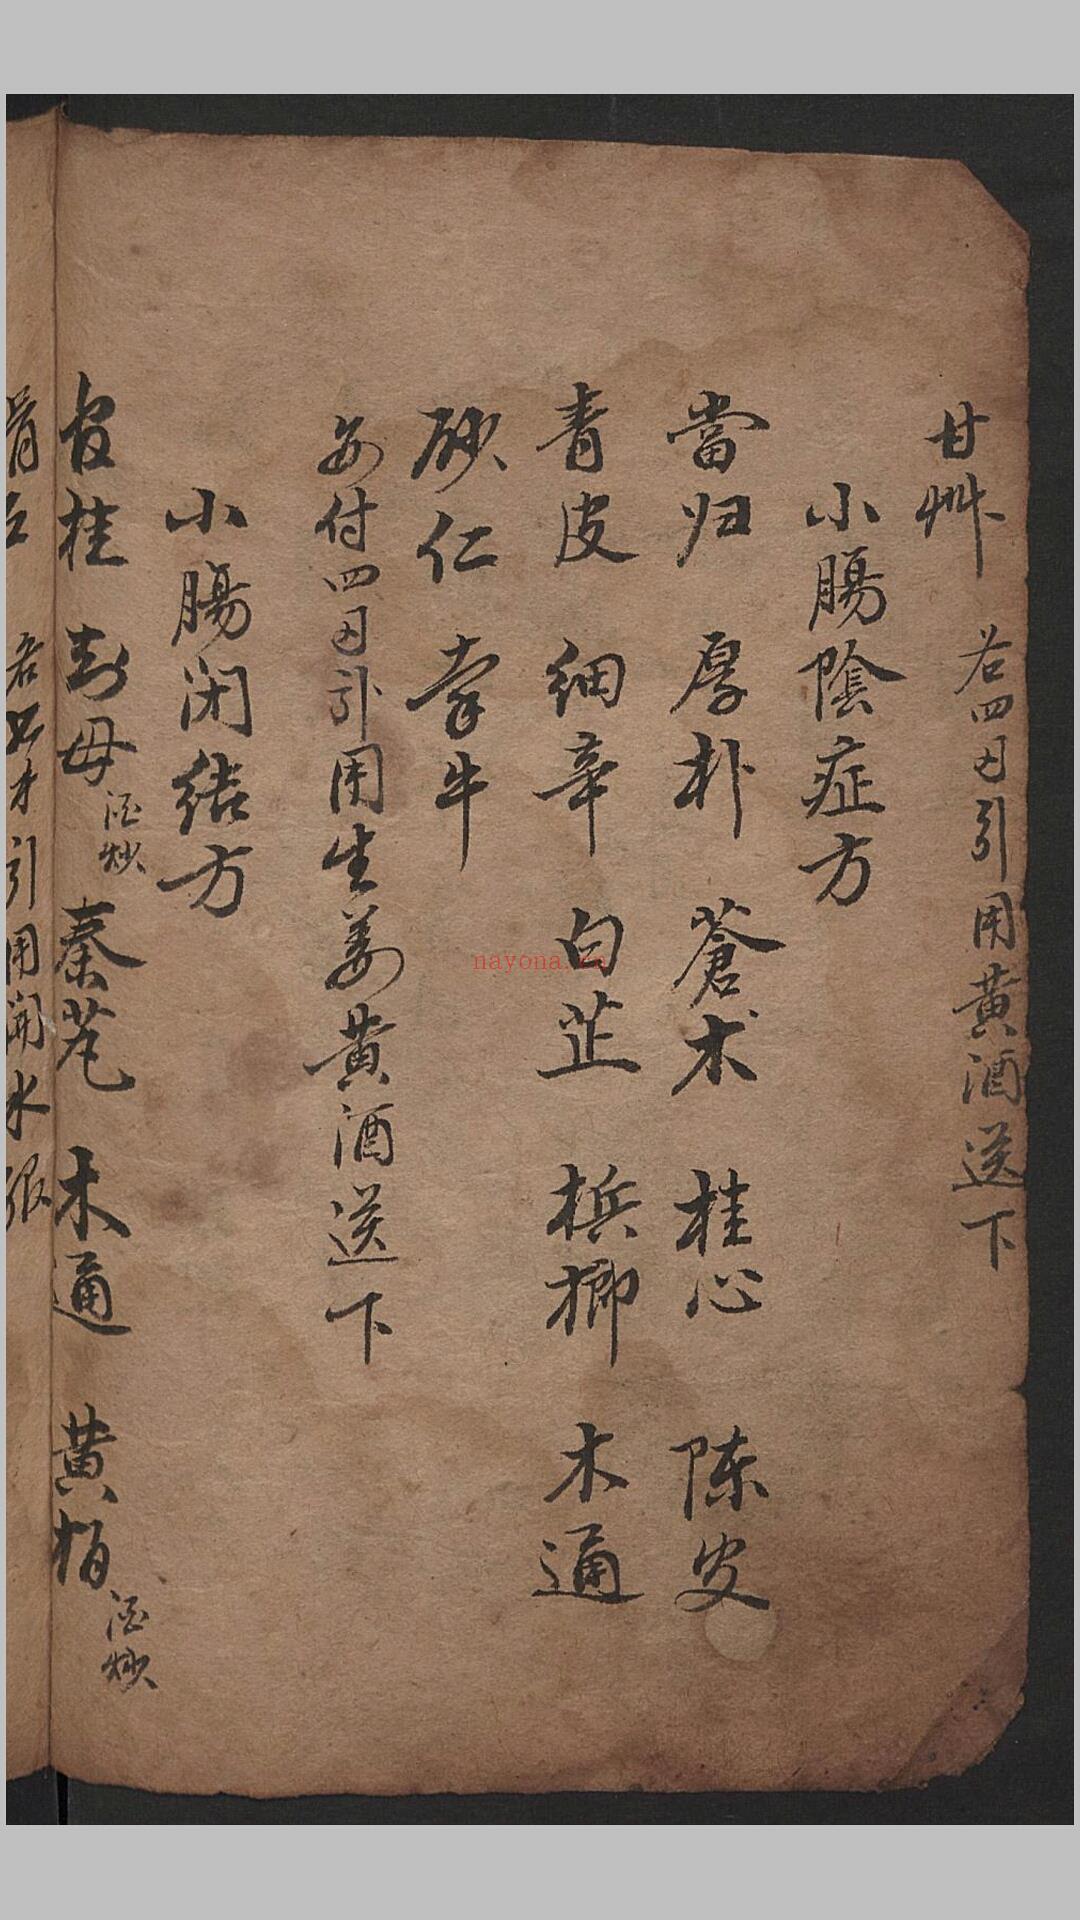 甘艸 各四匁引用黄酒送下
小腸陰症方
當归 厚朴 蒼术 桂心 陈皮
青皮 细辛 白芷 梹榔 木通
砂仁 牽牛
各付四匁引用生姜黄酒送下
小腸闭结方
官桂 知母酒炒 秦艽 木通 黄柏酒炒
引用開水
nayona.cn